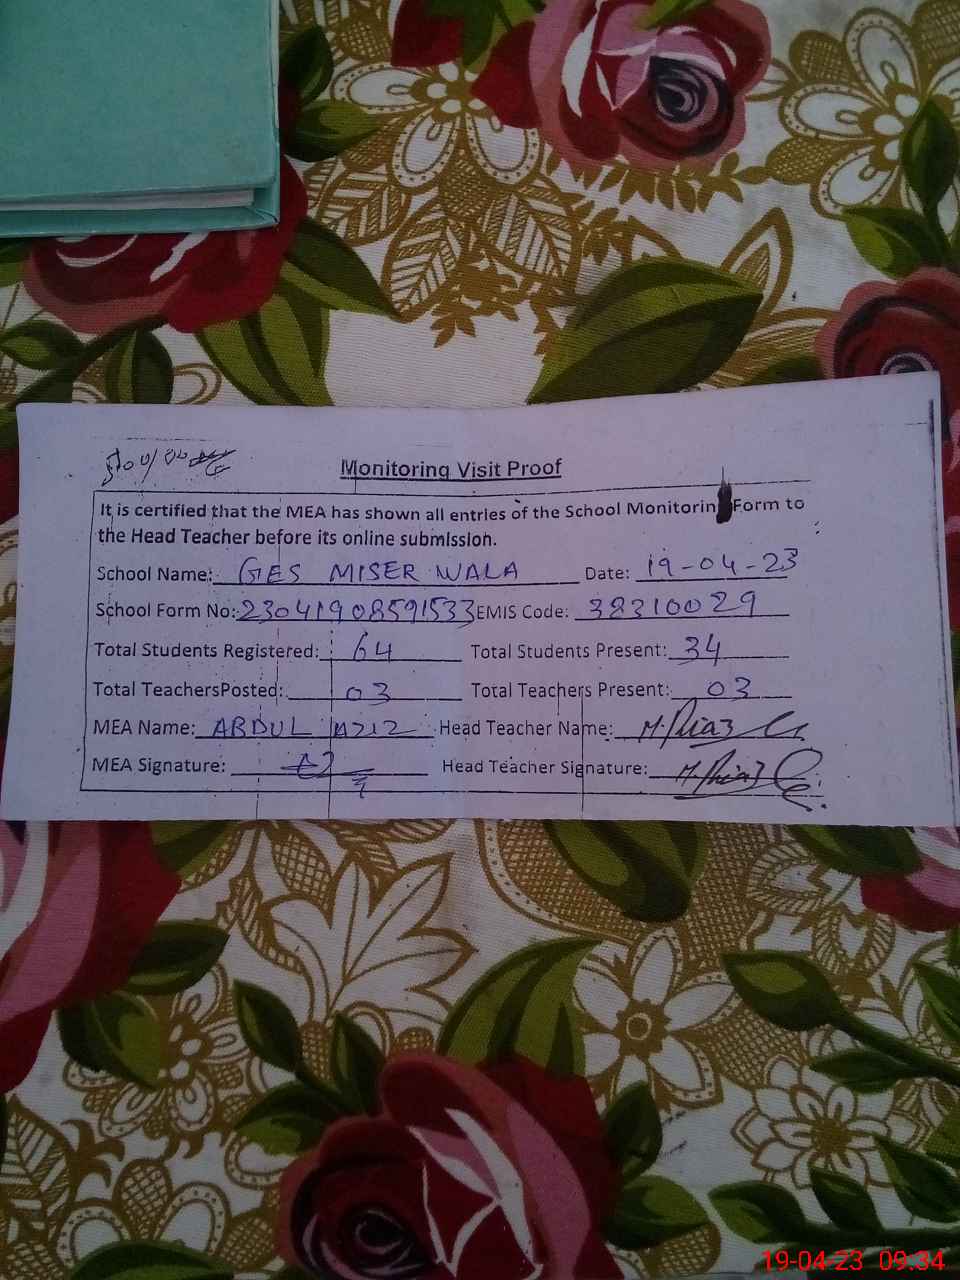 Monitoring Visit Proof
It is certified that the MEA has shown all entries of the School Monitoring Form to
the Head Teacher before its online submission.
School Name: GES MISER WALA Date: 19-04-23
School Form No: 23041908591533 EMIS Code: 38310029
Total Students Registered: 64 Total Students Present: 34
Total TeachersPosted: 03 Total Teachers Present: 03
MEA Name: ABDUL AZIZ Head Teacher Name: M. Riaz
MEA Signature: Head Teacher Signature: M. Riaz
19-04-23 09:34